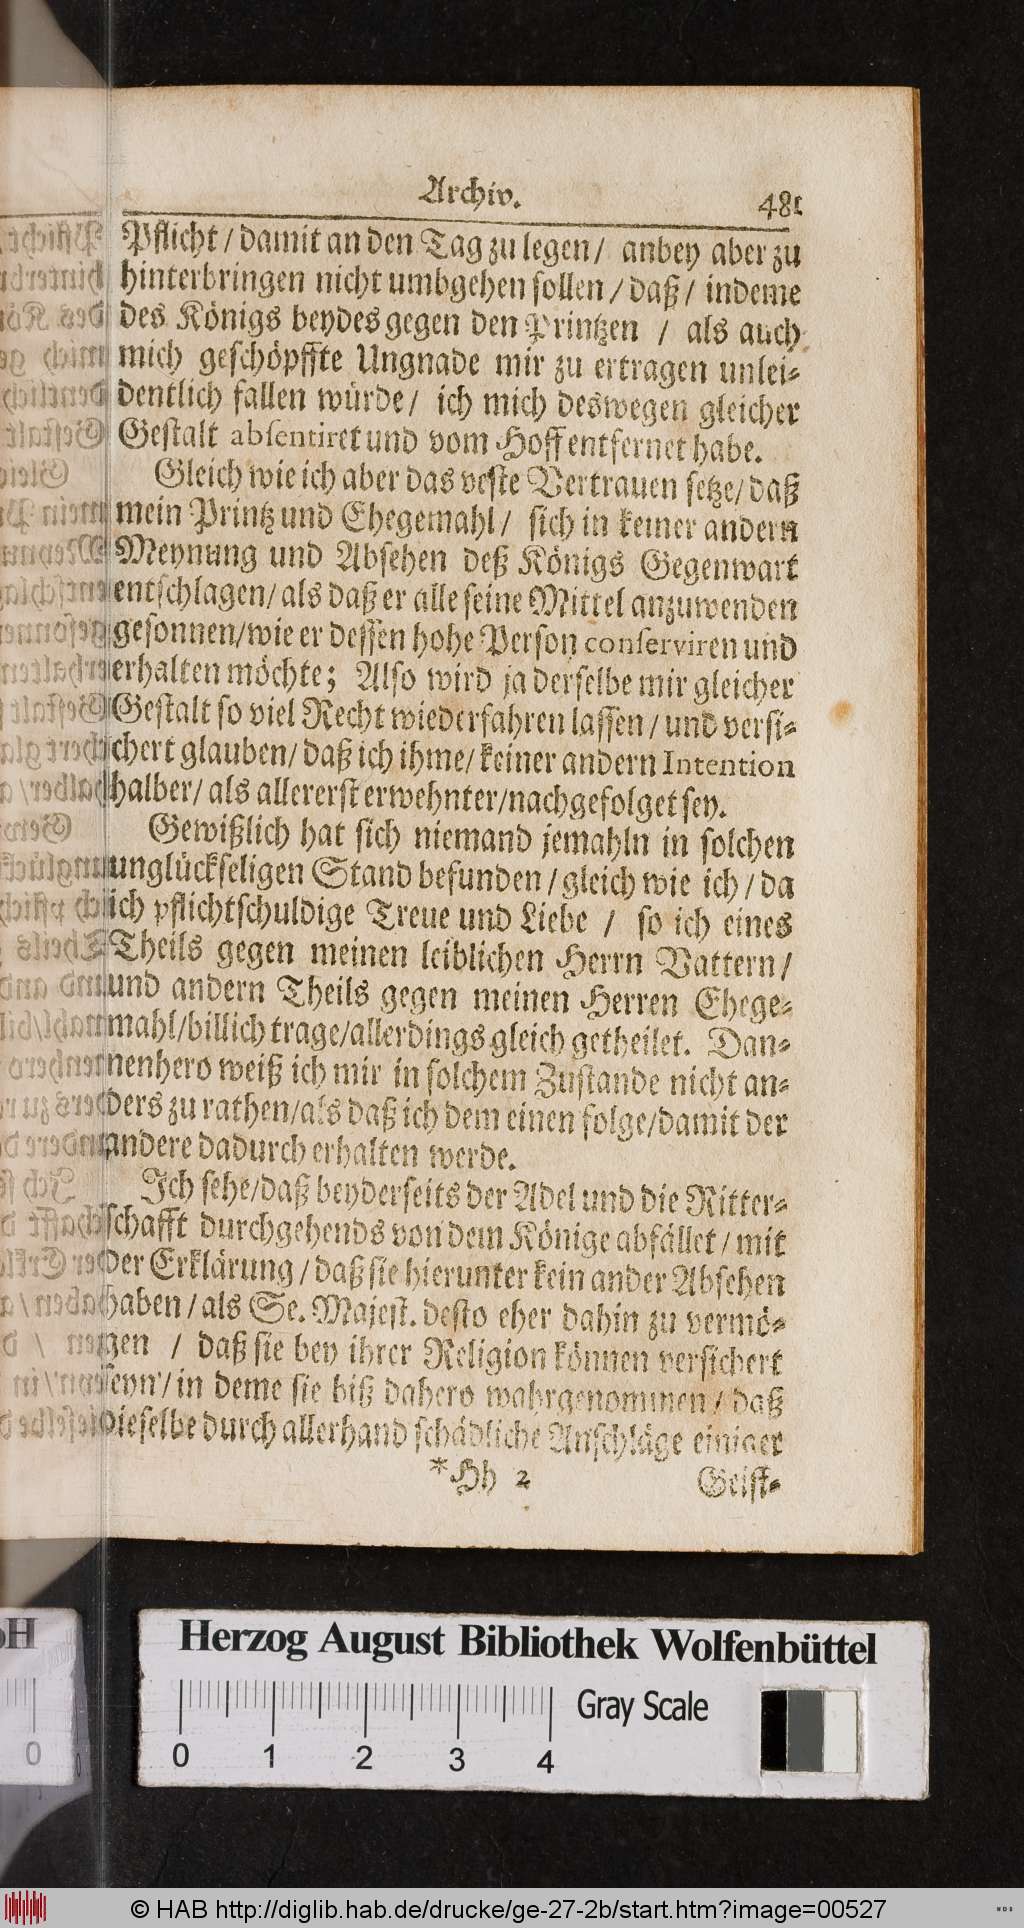 Archiv. 481
Pflicht / damit an den Tag zu legen / anbey aber zu
hinterbringen nicht umbgehen sollen / daß / indeme
des Königs beydes gegen den Printzen / als auch
mich geschöpffte Ungnade mir zu ertragen unlei-
dentlich fallen würde / ich mich deswegen gleicher
Gestalt absentiret und vom Hoff entfernet habe.
Gleich wie ich aber das veste Vertrauen setze / daß
mein Printz und Ehegemahl / sich in keiner andern
Meynung und Absehen deß Königs Gegenwart
entschlagen / als daß er alle seine Mittel anzuwenden
gesonnen / wie er dessen hohe Person conserviren und
erhalten möchte; Also wird ja derselbe mir gleicher
Gestalt so viel Recht wiederfahren lassen / und versi-
chert glauben / daß ich ihme / keiner andern Intention
halber / als allererst erwehnter / nachgefolget sey.
Gewißlich hat sich niemand jemahln in solchen
unglückseligen Stand befunden / gleich wie ich / da
ich pflichtschuldige Treue und Liebe / so ich eines
Theils gegen meinen leiblichen Herrn Vattern /
und andern Theils gegen meinen Herren Ehege-
mahl / billich trage / allerdings gleich getheilet. Dan-
nenhero weiß ich mir in solchem Zustande nicht an-
ders zu rathen / als daß ich dem einen folge / damit der
andere dadurch erhalten werde.
Ich sehe / daß beyderseits der Adel und die Ritter-
schafft durchgehends von dem Könige abfället / mit
der Erklärung / daß sie hierunter kein ander Absehen
haben / als Se. Majest. desto eher dahin zu vermö-
gen / daß sie bey ihrer Religion können versichert
seyn / in deme sie biß dahero wahrgenommen / daß
dieselbe durch allerhand schädliche Anschläge einiger
*Hh 2 Geist-
Herzog August Bibliothek Wolfenbüttel
Gray Scale
0 1 2 3 4
© HAB http://diglib.hab.de/drucke/ge-27-2b/start.htm?image=00527